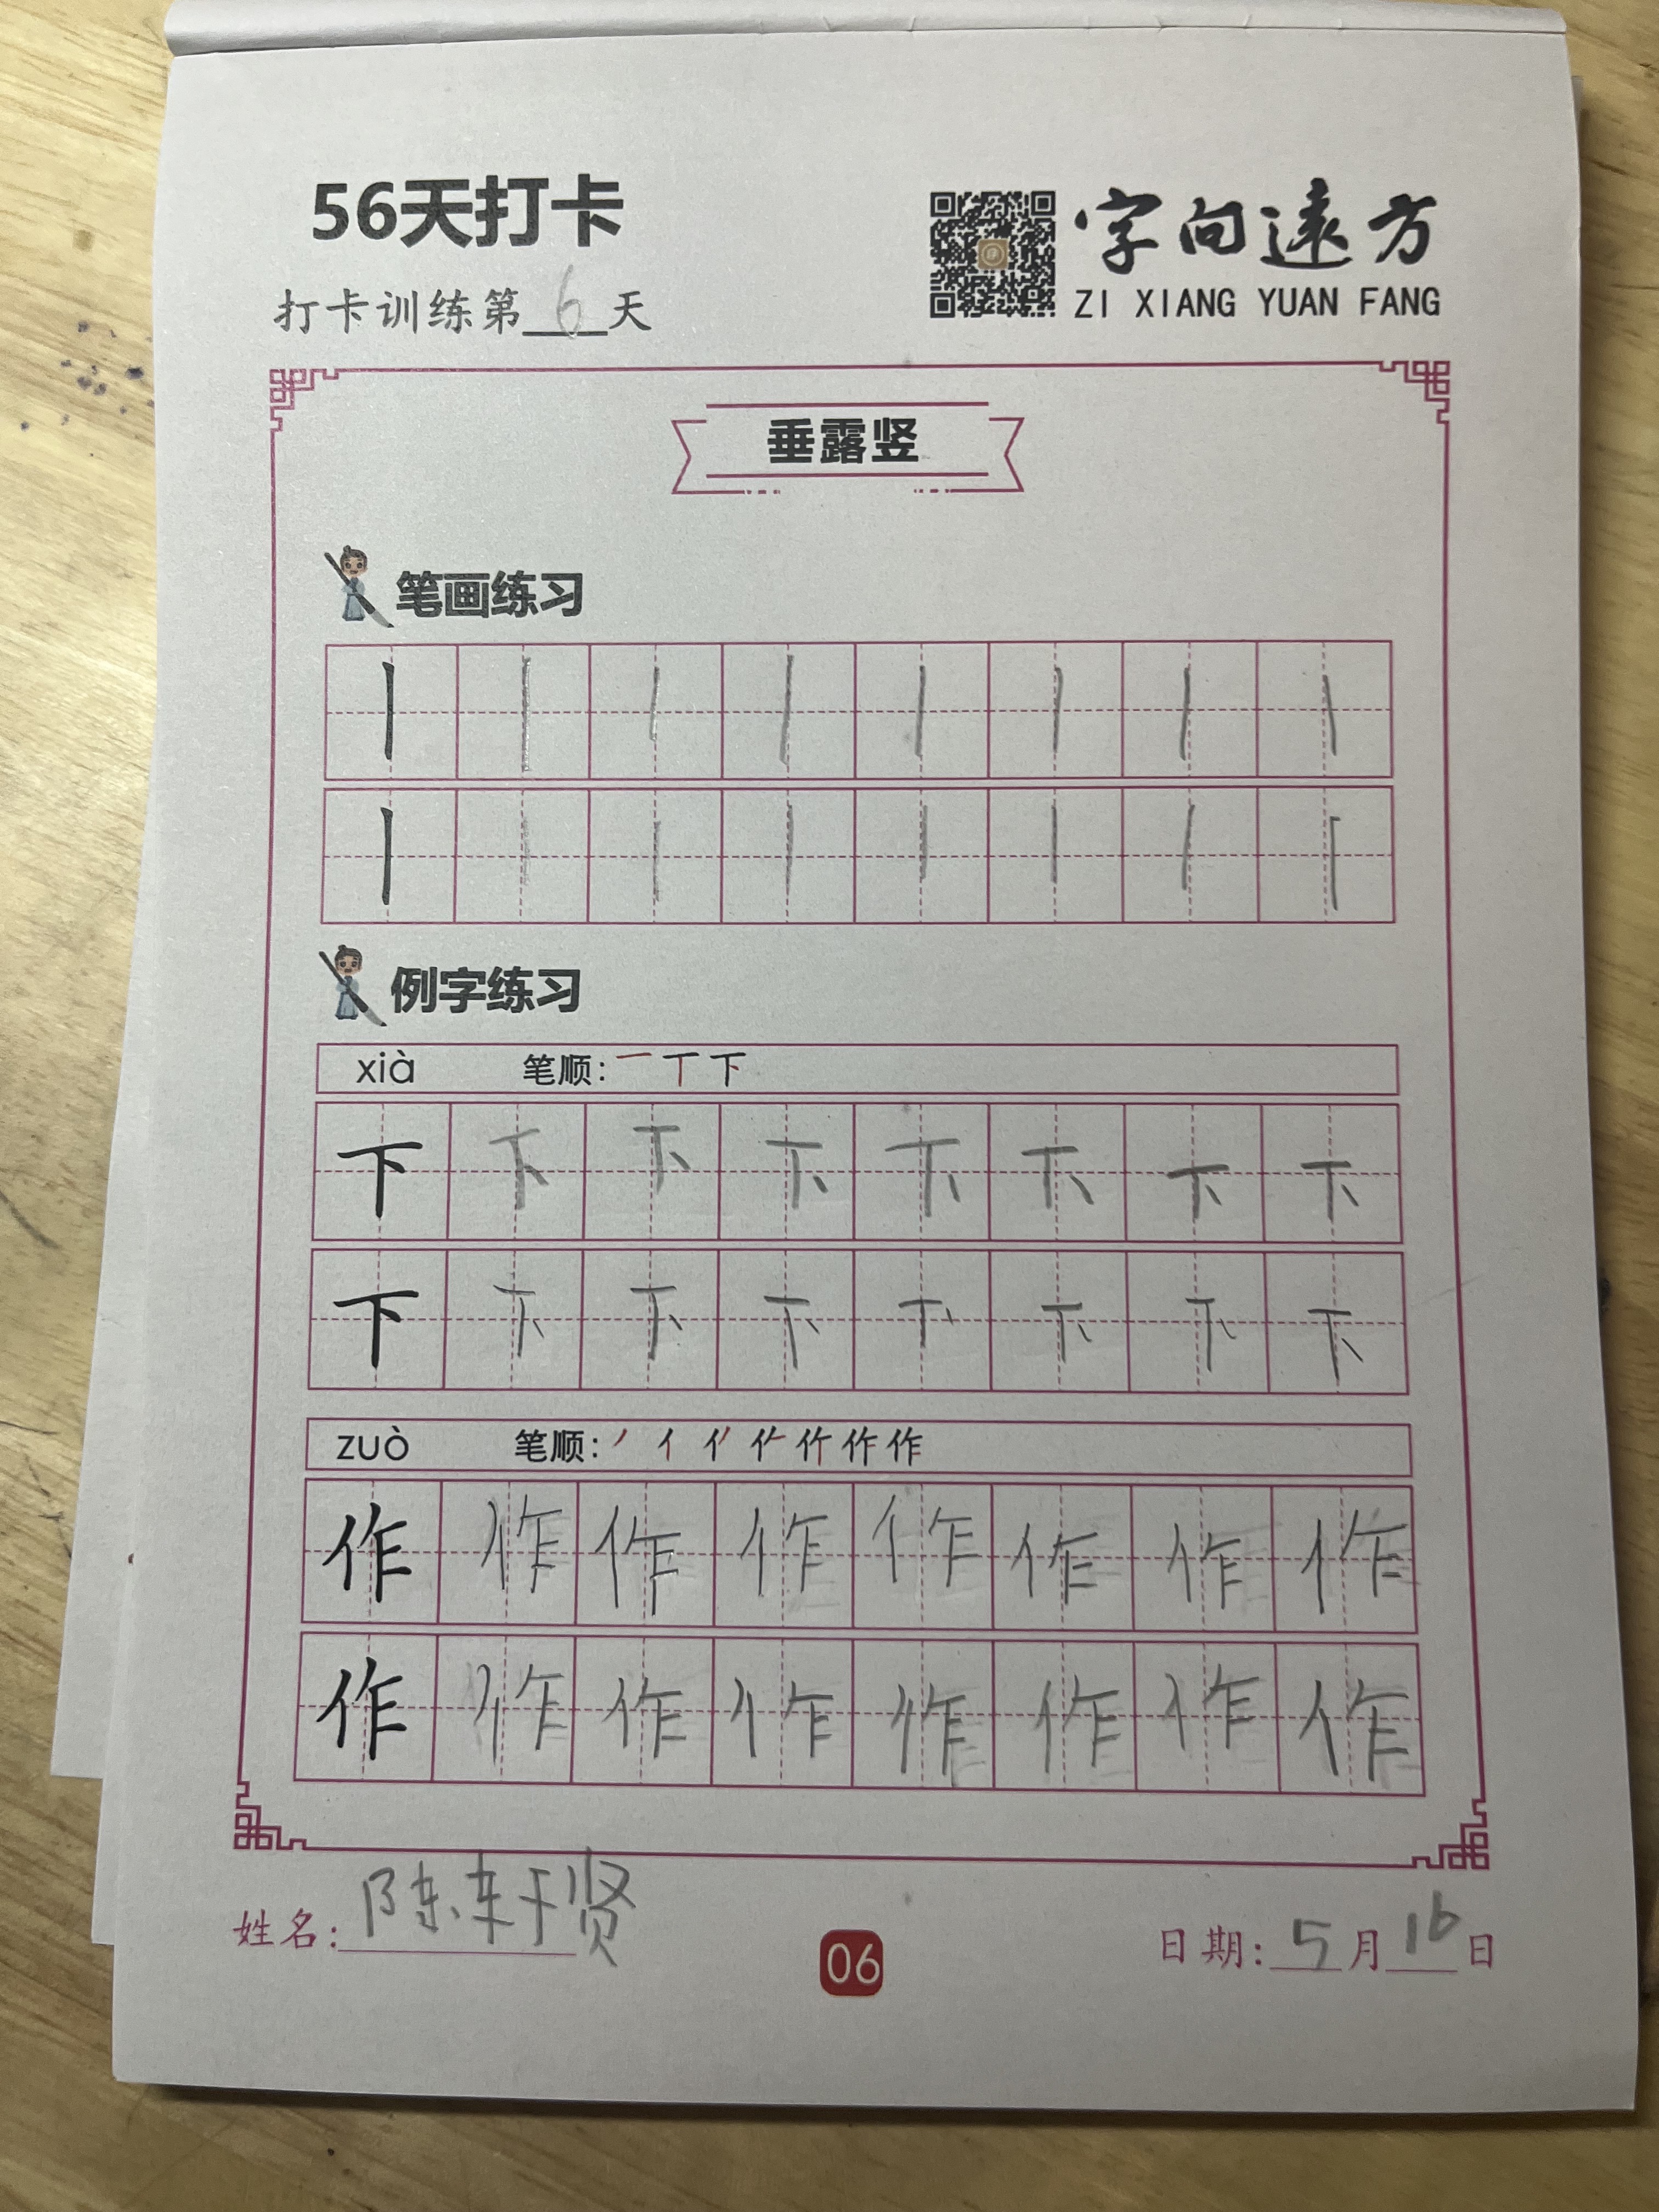 56天打卡
打卡训练第6天
字向遠方
ZI XIANG YUAN FANG
垂露竖
笔画练习
丨丨丨丨丨丨丨丨
丨丨丨丨丨丨丨丨
例字练习
xià 笔顺: 一丅下
下下下下下下下下
下下下下下下下下
zuò 笔顺: 作
作作作作作作作作
作作作作作作作作
姓名: 陈轩贤
06
日期: 5月16日